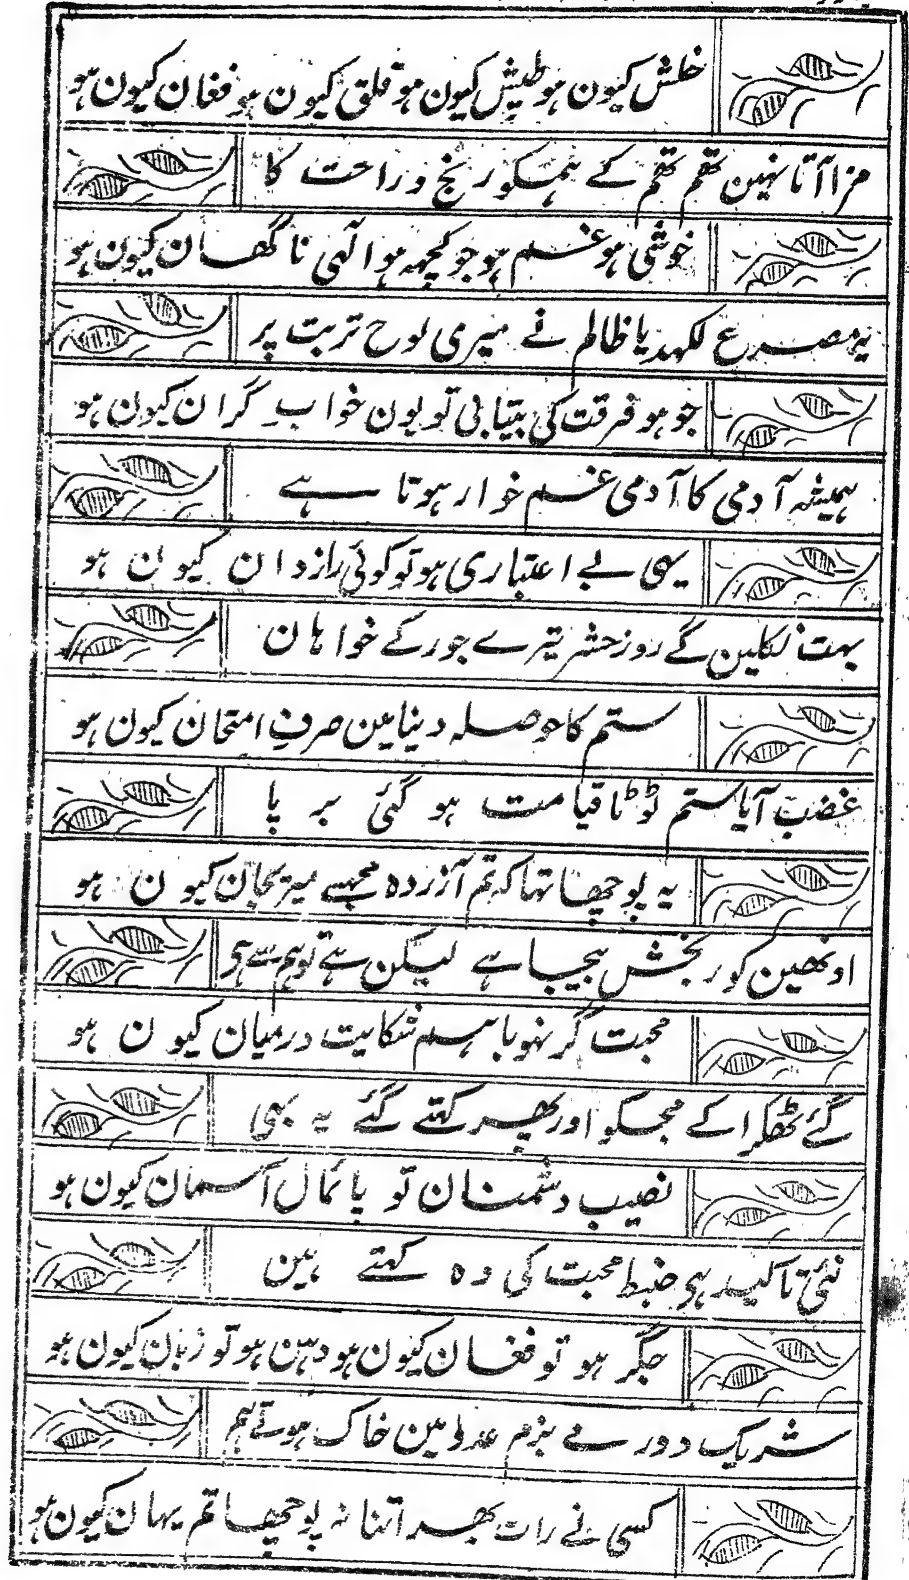 خلش کیون ہو طپش کیون ہو قلق کیون ہو فغان کیون ہو
مزا آتا نہین تھم تھم کے ہمکو رنج و راحت کا
خوشی ہو غم ہو جو کچھہ ہو الٰہی ناگھان کیون ہو
یہ مصرع لکھدیا ظالم نے میری لوح تربت پر
جو ہو فرقت کی بیتابی تو یون خوابِ گران کیون ہو
ہمیشہ آدمی کا آدمی غم خوار ہوتا ہے
یہی بے اعتباری ہو تو کوئی رازدان کیون ہو
بہت نکلین گے روز حشر تیرے جور کے خواہان
ستم کا حوصلہ دنیا مین صرفِ امتحان کیون ہو
غضب آیا ستم ٹوٹا قیامت ہو گئی برپا
یہ پوچھا تہا کہ تم آزردہ مجہسے میریجان کیون ہو
اونھین کو رنجش بیجا ہے لیکن ہے تو ہم سے ہی
محبت گر نہو باہم شکایت درمیان کیون ہو
گئے ٹھکرا کے مجکو اور پھر کہتے گئے یہ بھی
نصیب دشمنان تو پائمال آسمان کیون ہو
نئی تاکید ہی ضبط محبت کی وہ کہتے ہین
جگر ہو تو فغان کیون ہو دہن ہو تو زبان کیون ہو
شریک دور مے بزم عدو مین خاک ہوتے ہم
کسی نے رات بھر اتنا نہ پوچھا تم یہان کیون ہو